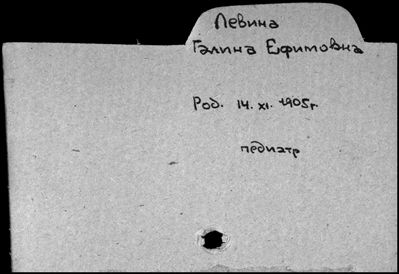 Левина
Галина Ефимовна
Род. 14. XI. 1905г.
педиатр